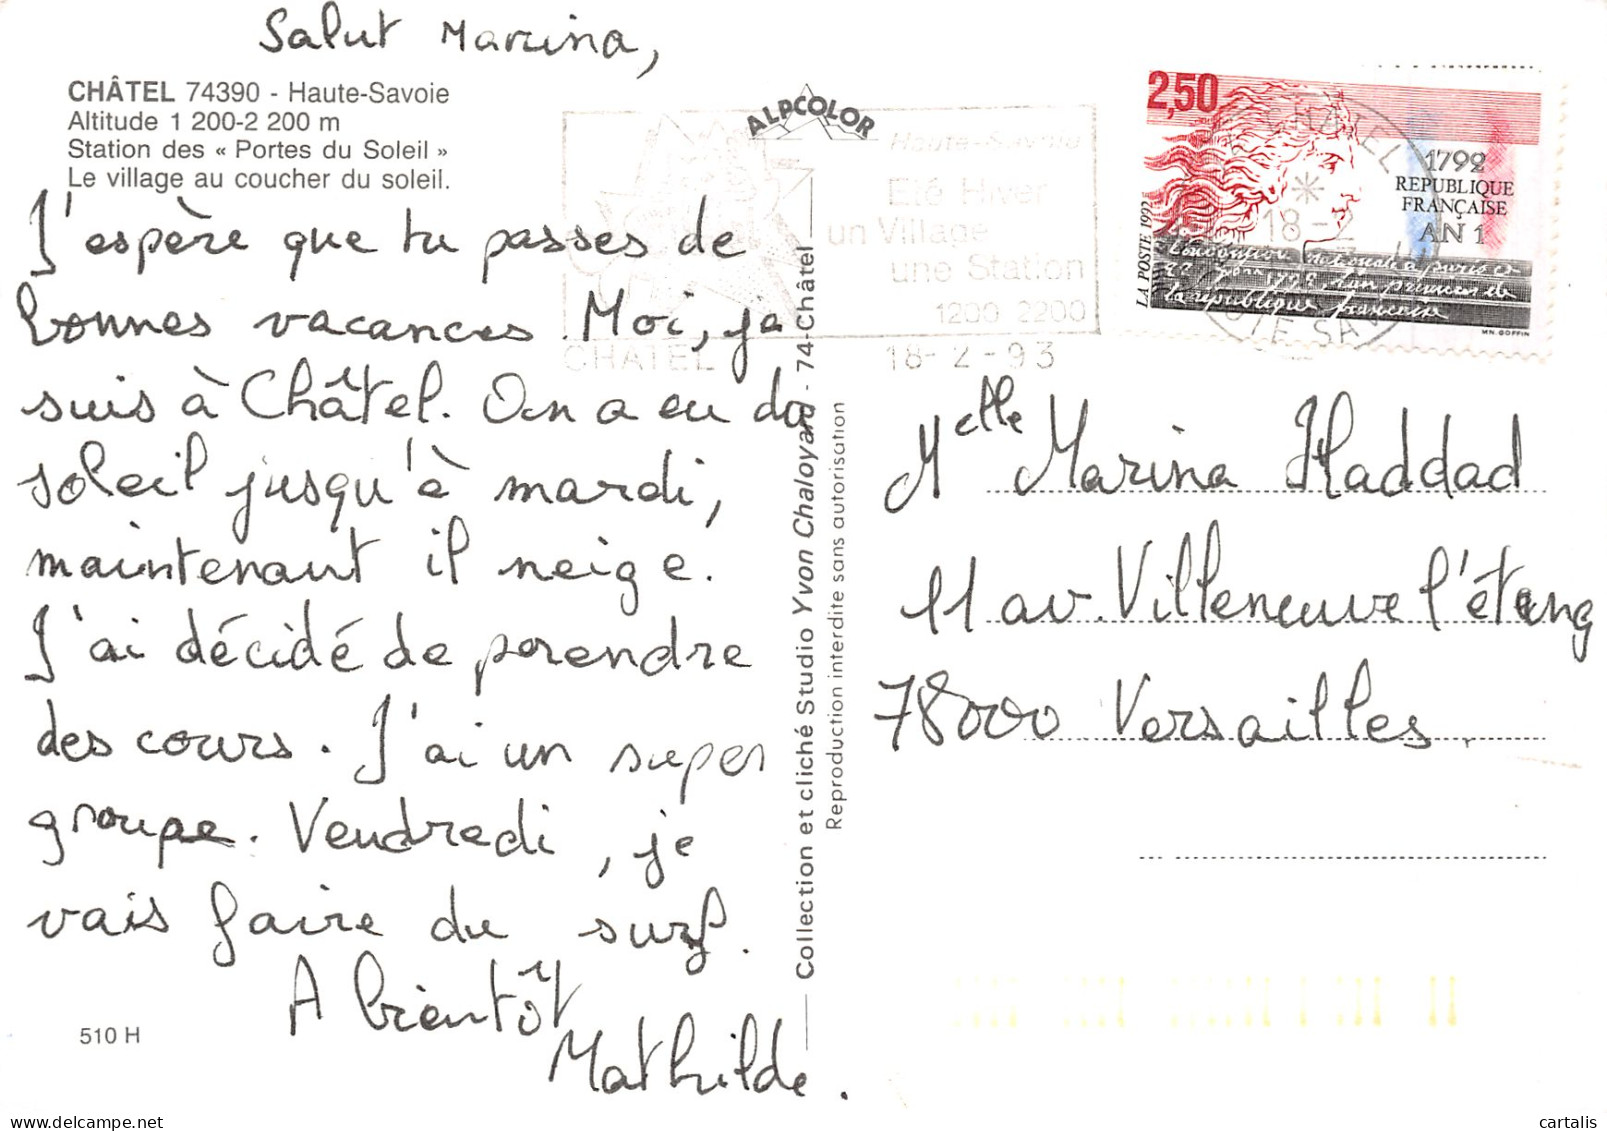 Salut Marina,
CHÂTEL 74390 - Haute-Savoie
Altitude 1 200-2 200 m
Station des « Portes du Soleil »
Le village au coucher du soleil.
J'espère que tu passes de
bonnes vacances Moi, je
suis à Châtel. On a eu du
soleil jusqu'à mardi,
maintenant il neige.
J'ai décidé de prendre
des cours. J'ai un super
groupe. Vendredi, je
vais faire du surf.
A bientôt
Mathilde.
510 H
ALPCOLOR
Haute-Savoie
Eté Hiver
un Village
une Station
1200 2200
CHATEL
18-2-93
Collection et cliché Studio Yvon Chaloyard - 74-Châtel
Reproduction interdite sans autorisation
2,50
1792
REPUBLIQUE
FRANÇAISE
AN 1
LA POSTE 1992
la république française
MN. GOFFIN
CHATEL
18-2
HAUTE SAVOIE
Melle Marina Haddad
11 av. Villeneuve l'étang
78000 Versailles.
delcampe.net
cartalis